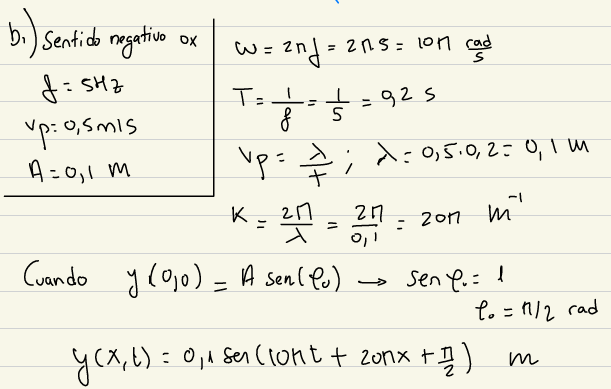 b.) Sentido negativo ox
f = 5Hz
vp = 0,5 m/s
A = 0,1 m
ω = 2πf = 2π5 = 10π rad/s
T = 1/f = 1/5 = 0,2 s
vp = λ/T ; λ = 0,5·0,2 = 0,1 m
K = 2π/λ = 2π/0,1 = 20π m⁻¹
Cuando y(0,0) = A sen(φ₀) → sen φ₀ = 1
φ₀ = π/2 rad
y(x,t) = 0,1 sen(10πt + 20πx + π/2) m